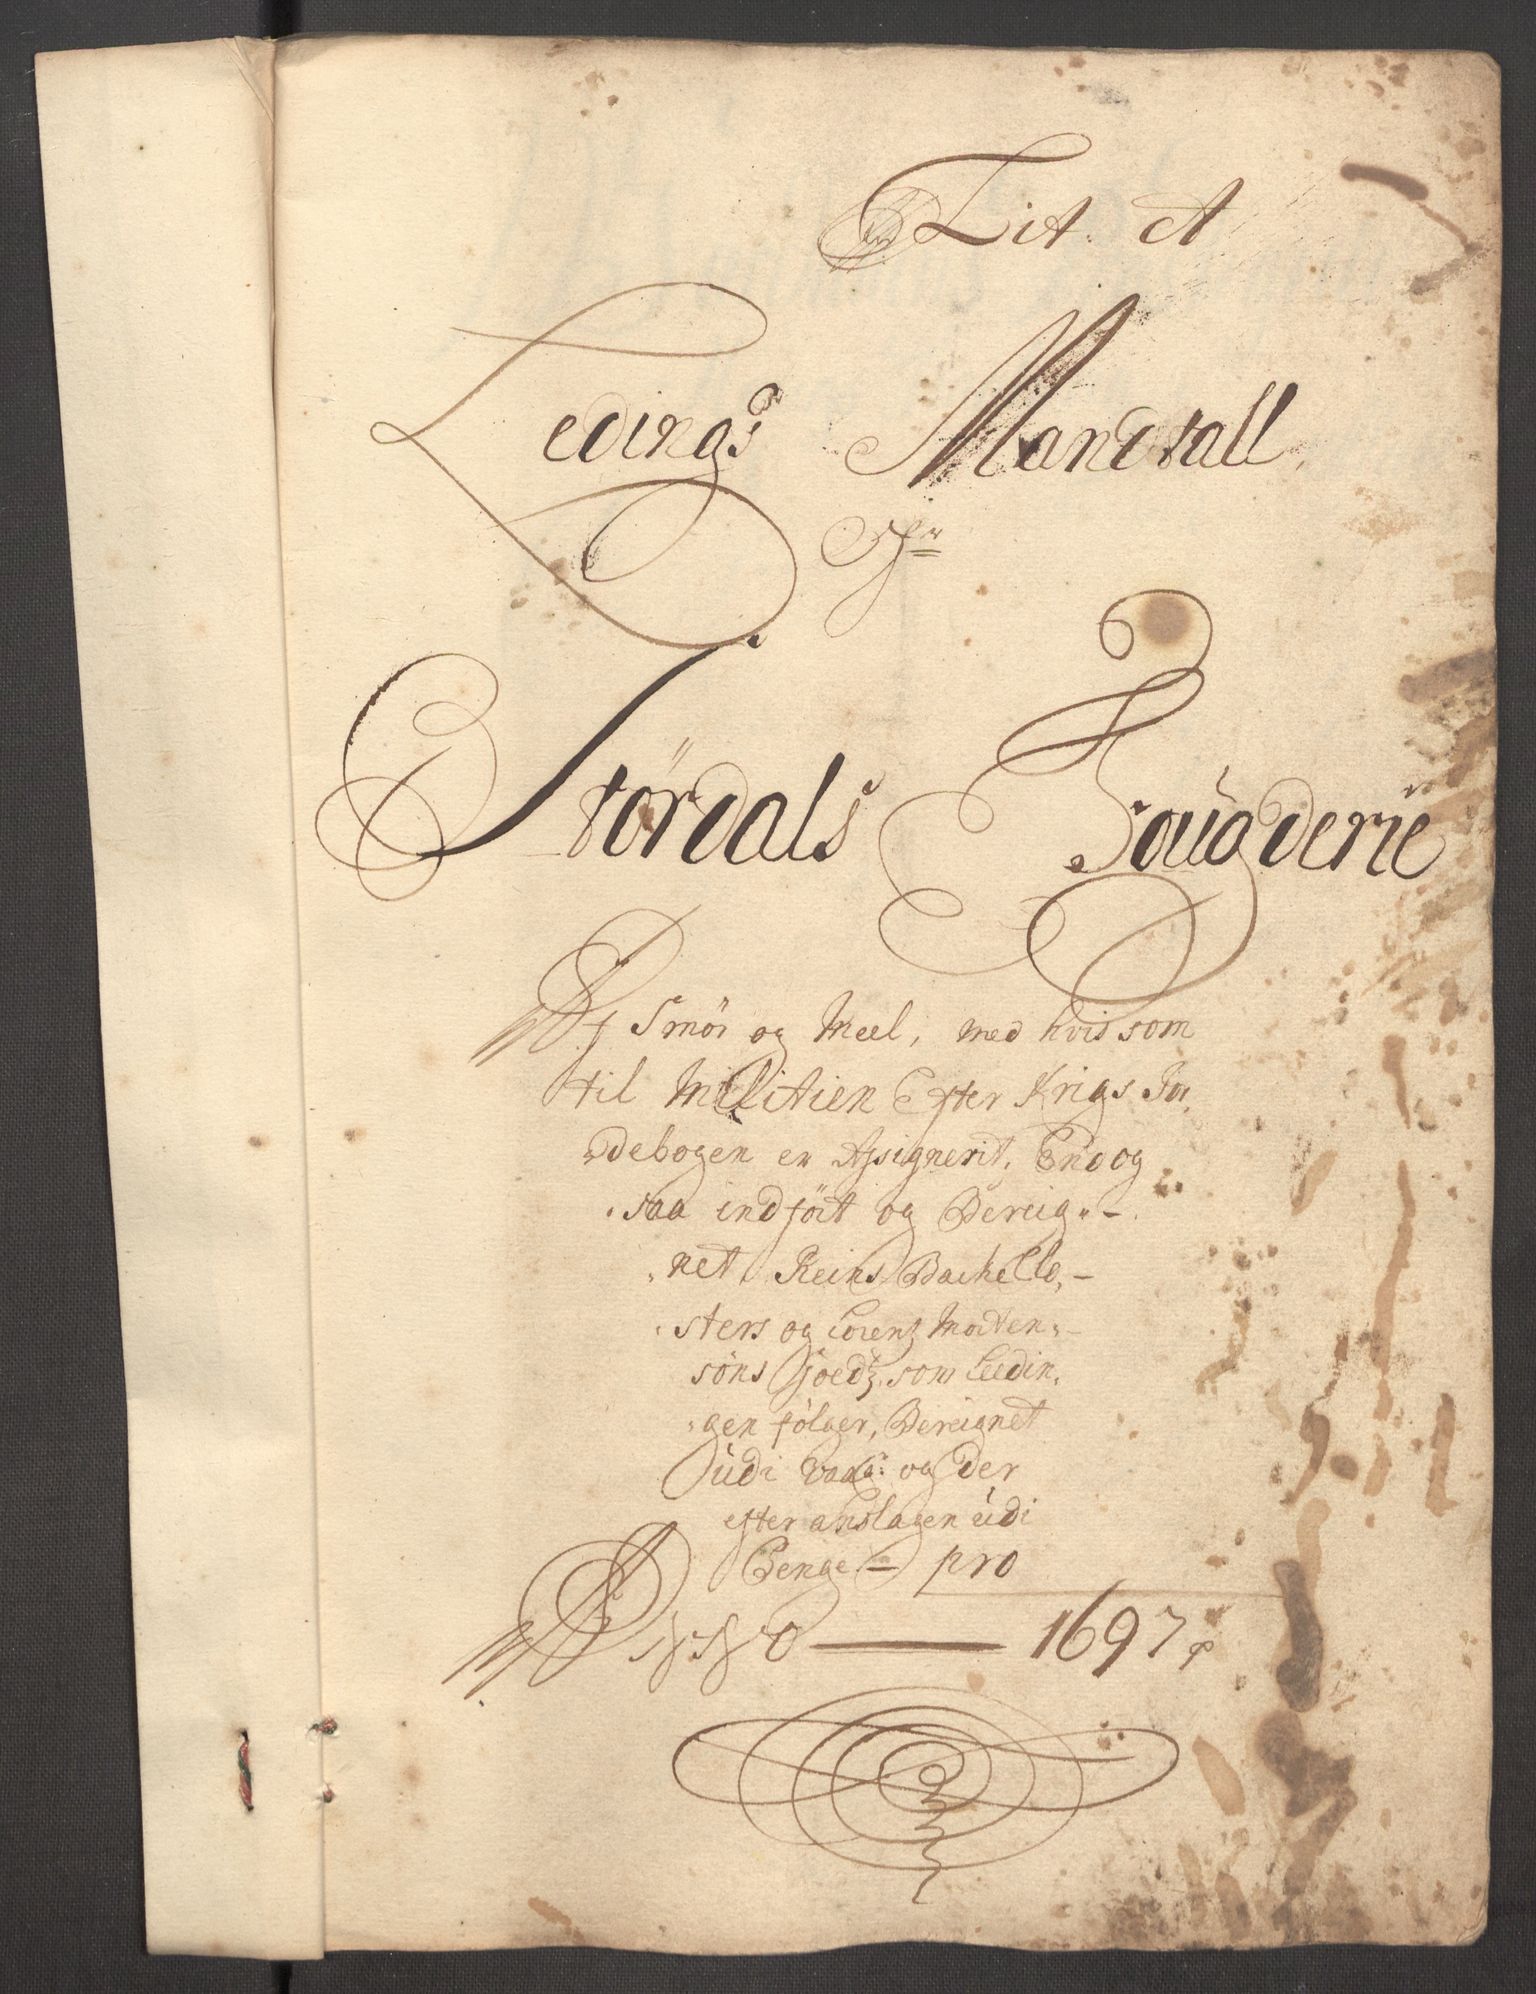 Lit. A
Ledings Mandtall
Stördals Fougderie
Smör og Meel, med hvis som
til Militien Efter Krigs Jor,
debogen er Assignerit, End og
saa indfört og Bereig„-
net, Reins Backe Clo,-
sters og Lorentz Morten„-
söns Goedtz, som Leedin,
gen fölger, Bereignet
udi og der
efter anslagen udi
Penge - pro
Anno — 1697